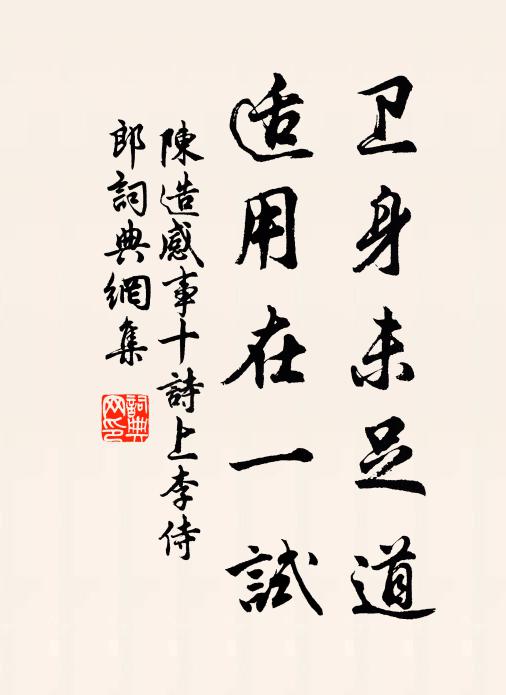 卫身未足道
适用在一試
陳造感事十詩上李侍
郎詞典網集
詞典網印